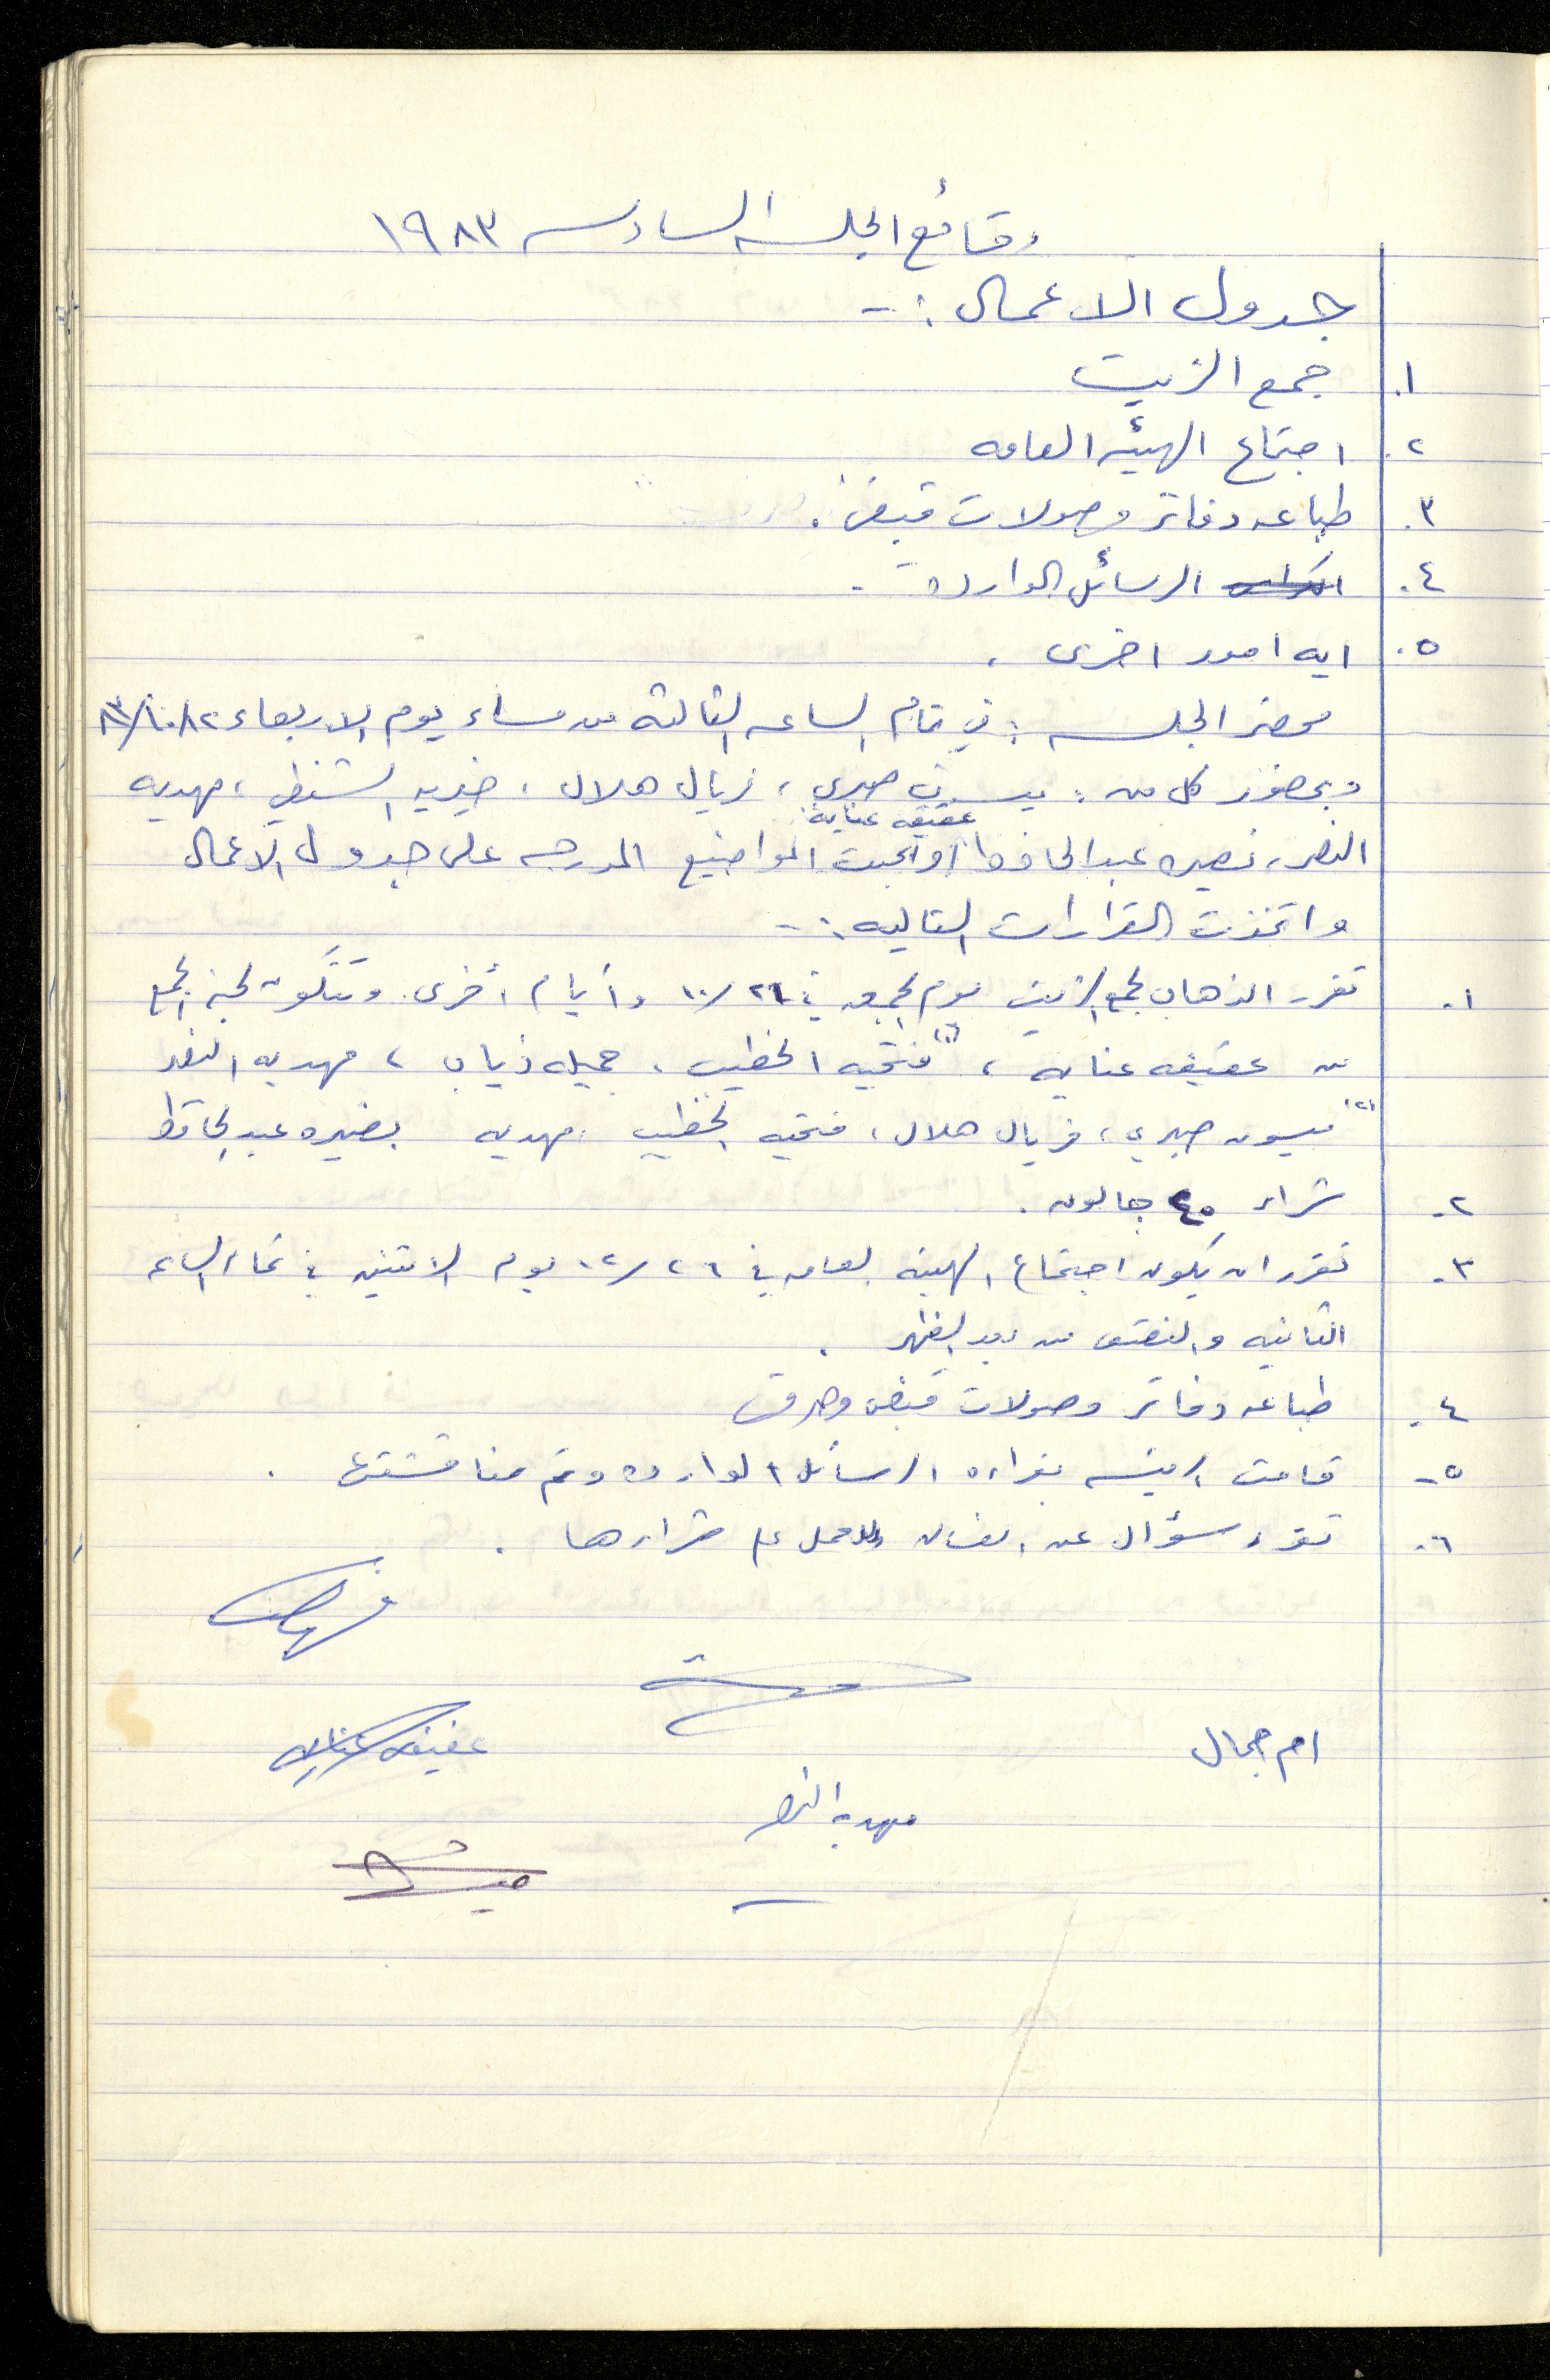 وقائع الجلسه السادسه ١٩٨٣
جدول الاعمال :-
١. جمع الزيت
٢. اجتماع الهيئه العامه
٣. طباعه دفاتر وصولات قبض .
٤. الرسائل الوارده .
٥. ايه امور اخرى .
محضر الجلسه : في تمام الساعه الثالثه من مساء يوم الاربعاء
وبحضور كل من : ميسون صبري ، فريال هلال ، خيريه الشنطي ، مهديه
عفيفه عنايه
النصر ، نصيره عبد الحافظ وبحثت المواضيع المدرجه على جدول الاعمال
واتخذت القرارات التاليه :-
١- تقرر الذهاب لجمع الزيت يوم الجمعه في ١٠/٢١ وأيام أخرى وتتكون لجنه الجمع
من عفيفه عنايه ، (١) فتحيه الخطيب ، جميله ذياب ، مهديه النصر
(٢) ميسون صبري ، فريال هلال ، فتحيه الخطيب ، مهديه نصيره عبد الحافظ
٢- شراء ٤٠ جالون .
٣- تقرر ان يكون اجتماع الهيئه العامه في ١٢/٢٦ يوم الاثنين في تمام الساعه
الثانيه والنصف من بعد الظهر .
٤- طباعه دفاتر وصولات قبض وصرف
٥- قامت الرئيسه بقراءه الرسائل الوارده وتم مناقشتها .
٦- تقرر سؤال عن
ام جمال
عفيفه عنايه
مهديه النصر